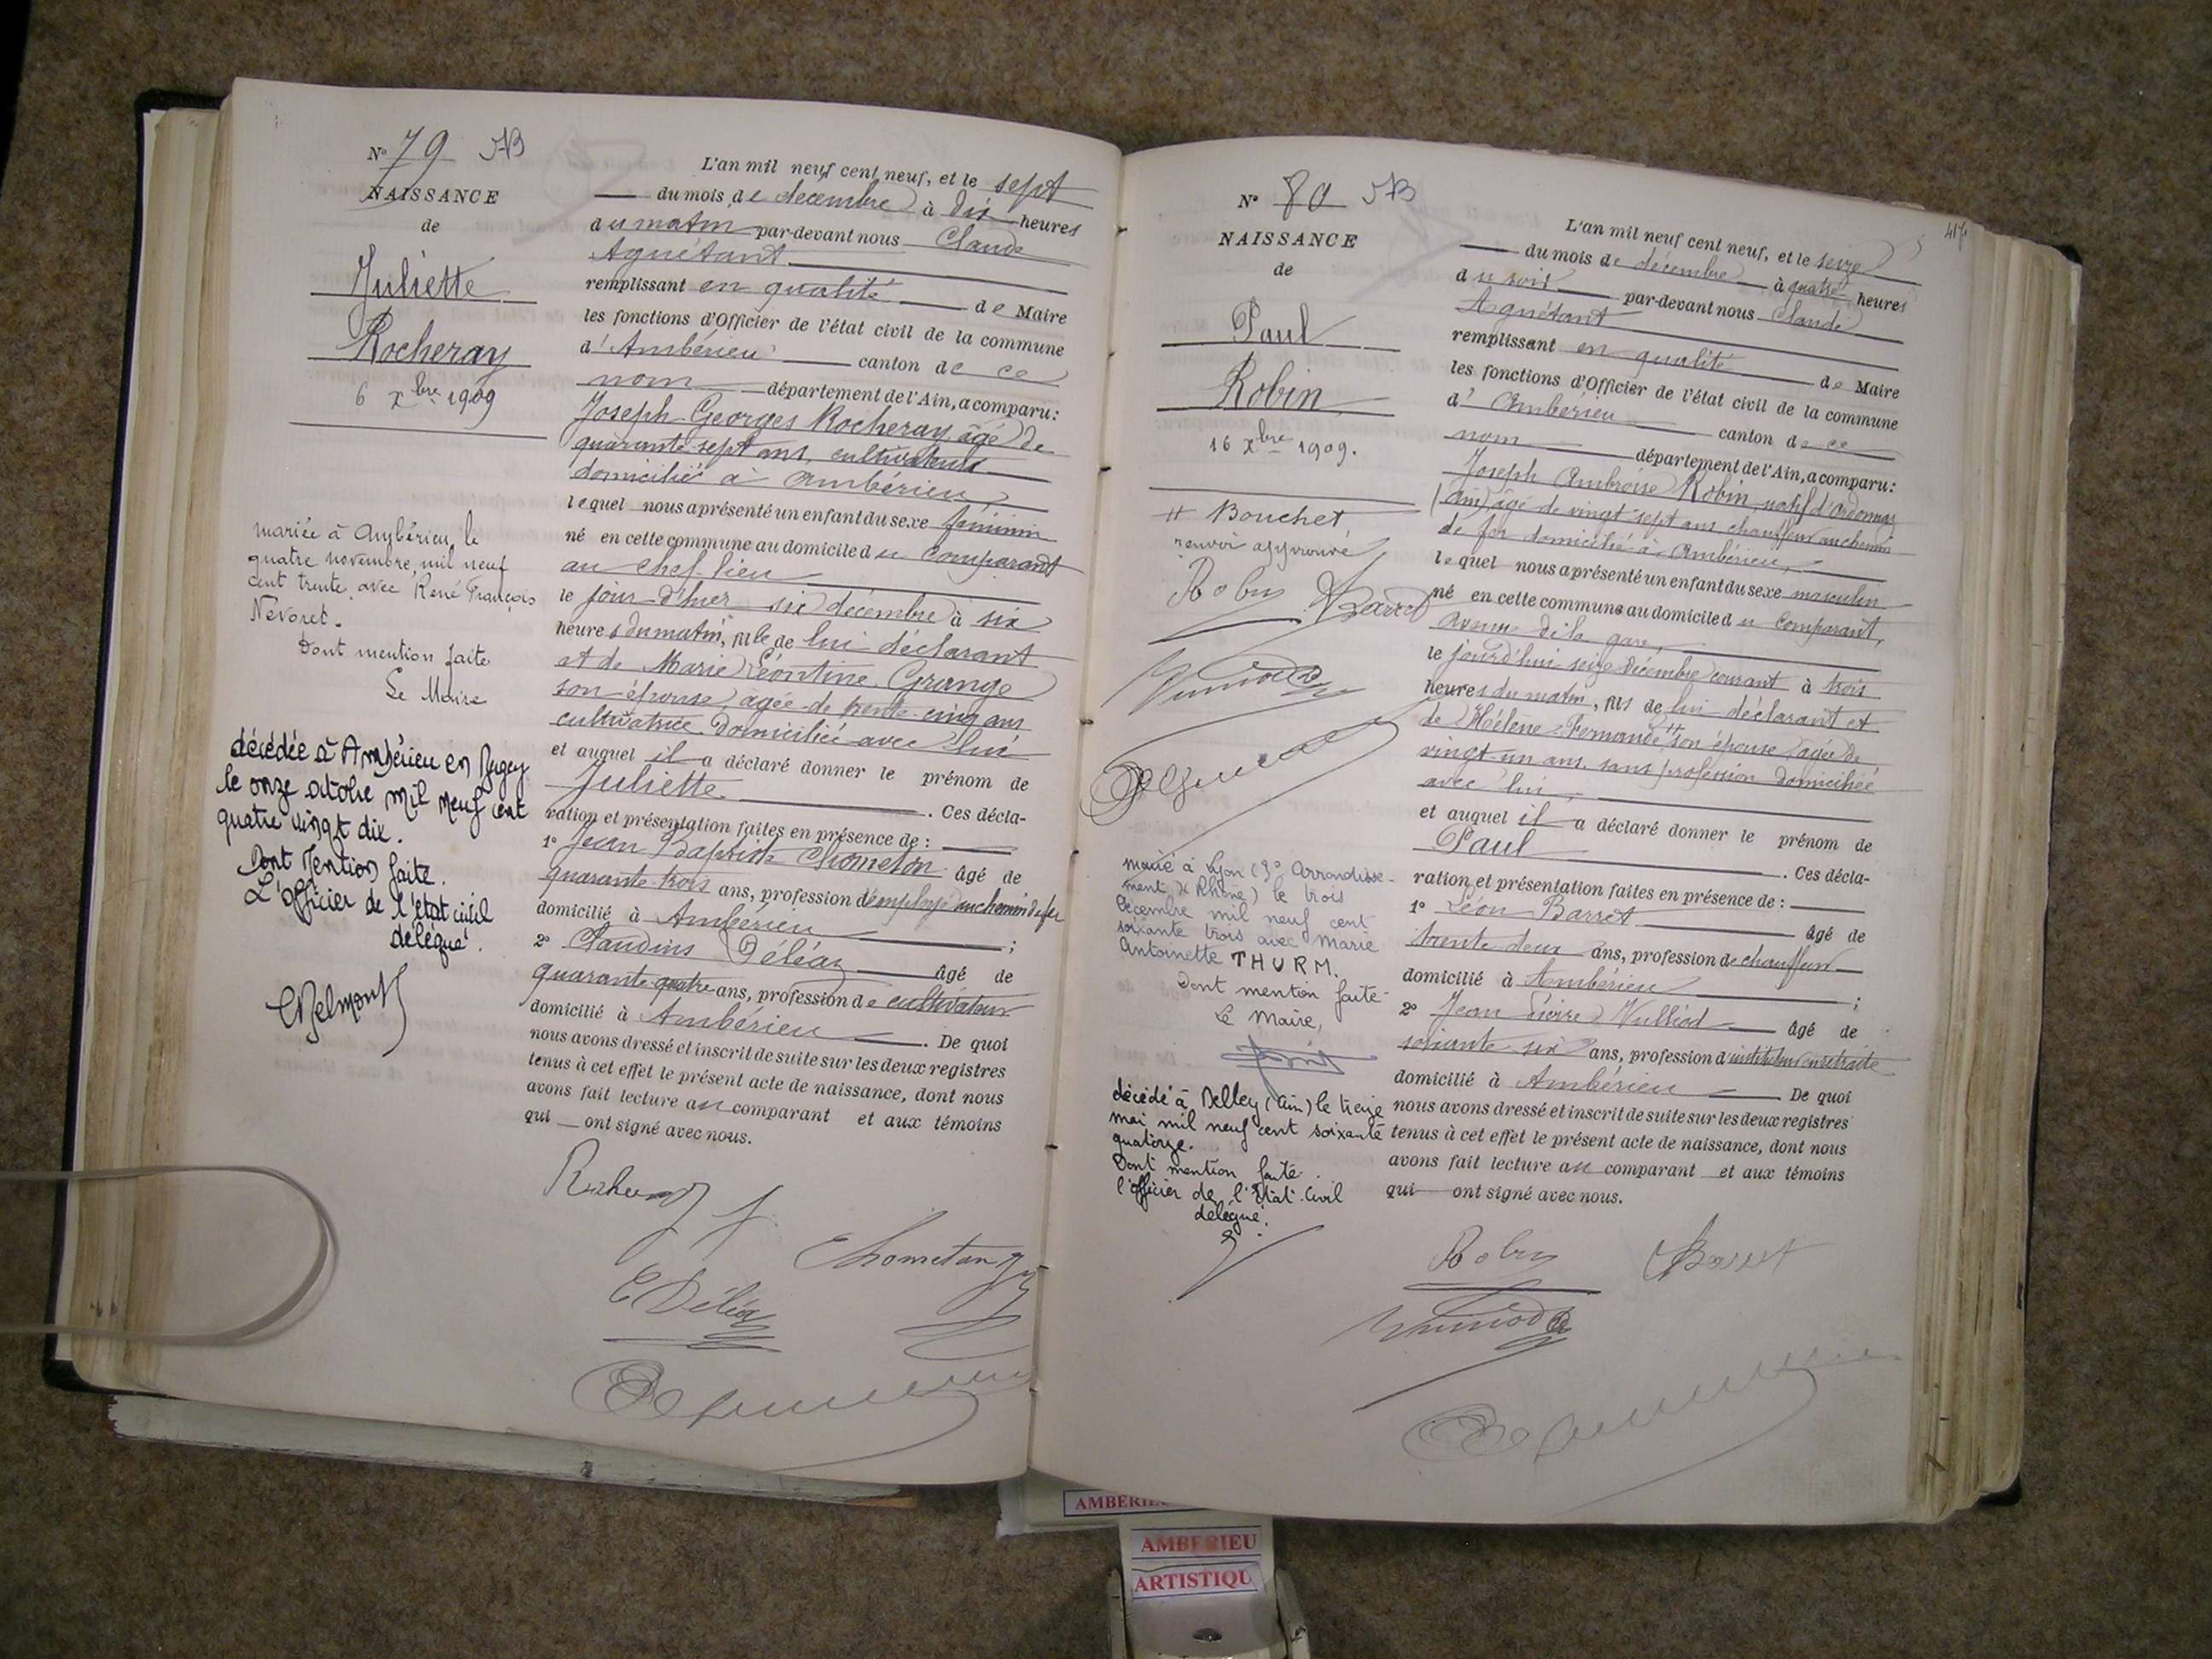 N° 79 JB
NAISSANCE
de
Juliette
Rocheray
6 xbre 1909
mariée à Ambérieu, le
quatre novembre, mil neuf
cent trente, avec René François
Nevoret.
Dont mention faite
Le Maire
décédée à Ambérieu en Bugey
le onze octobre mil neuf cent
quatre vingt dix.
Dont Mention faite.
L'Officier de l'état civil
délégué.
L'an mil neuf cent neuf, et le sept
du mois de décembre à dix heures
du matin par-devant nous Claude
Aguétant
remplissant en qualité de Maire
les fonctions d'Officier de l'état civil de la commune
d'Ambérieu canton de ce
nom département de l'Ain, a comparu:
Joseph Georges Rocheray, âgé de
quarante sept ans, cultivateur
domicilié à Ambérieu,
lequel nous a présenté un enfant du sexe féminin
né en cette commune au domicile du comparant
au chef-lieu
le jour d'hier six décembre à six
heures du matin, fille de lui déclarant
et de Marie Léontine Grange
son épouse, âgée de trente cinq ans
cultivatrice domiciliée avec lui
et auquel il a déclaré donner le prénom de
Juliette. Ces décla-
ration et présentation faites en présence de :
1° Jean Baptiste Chometon âgé de
quarante trois ans, profession d'employé au chemin de fer
domicilié à Ambérieu ;
2° Claudius Déléaz âgé de
quarante quatre ans, profession de cultivateur
domicilié à Ambérieu. De quoi
nous avons dressé et inscrit de suite sur les deux registres
tenus à cet effet le présent acte de naissance, dont nous
avons fait lecture au comparant et aux témoins
qui ont signé avec nous.
Rocheray
Chometon
C Déléaz
N° 80 JB
NAISSANCE
de
Paul
Robin
16 xbre 1909.
++ Bouchet,
renvoi approuvé
Robin Barret
marié à Lyon (3° Arrondisse-
ment) (Rhône) le trois
décembre mil neuf cent
soixante trois avec Marie
Antoinette THURM.
Dont mention faite
Le Maire,
décédé à Belley (Ain) le treize
mai mil neuf cent soixante
quatorze.
Dont mention faite.
l'officier de l'Etat-Civil
délégué.
417
L'an mil neuf cent neuf, et le seize
du mois de décembre à quatre heures
du soir par-devant nous Claude
Aguétant
remplissant en qualité de Maire
les fonctions d'Officier de l'état civil de la commune
d'Ambérieu canton de ce
nom département de l'Ain, a comparu:
Joseph Ambroise Robin, natif d'Ordonnaz
(Ain), âgé de vingt-sept ans chauffeur au chemin
de fer domicilié à Ambérieu,
lequel nous a présenté un enfant du sexe masculin
né en cette commune au domicile du comparant,
avenue de la gare,
le jourd'hui seize décembre courant à trois
heures du matin, fils de lui déclarant et
de Hélène Fernande ++ son épouse âgée de
vingt-un ans, sans profession domiciliée
avec lui,
et auquel il a déclaré donner le prénom de
Paul. Ces décla-
ration et présentation faites en présence de :
1° Léon Barret âgé de
trente deux ans, profession de chauffeur
domicilié à Ambérieu ;
2° Jean Pierre Vulliod âgé de
soixante six ans, profession d'instituteur en retraite
domicilié à Ambérieu De quoi
nous avons dressé et inscrit de suite sur les deux registres
tenus à cet effet le présent acte de naissance, dont nous
avons fait lecture au comparant et aux témoins
qui ont signé avec nous.
Robin Barret
AMBERIEU
ARTISTIQU